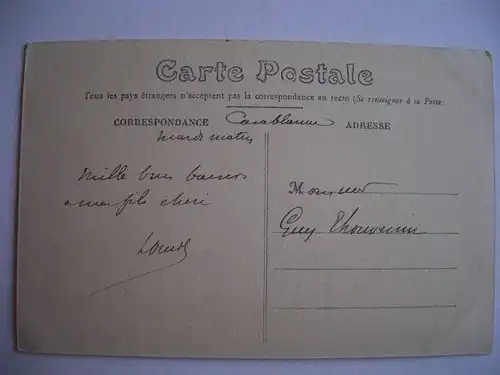 Carte Postale
Tous les pays étrangers n'acceptent pas la correspondance au recto (Se renseigner à la Poste)
CORRESPONDANCE Casablanca ADRESSE
mardi matin
Mille bons baisers
a mon fils cheri
Monsieur
Guy Thouvenin